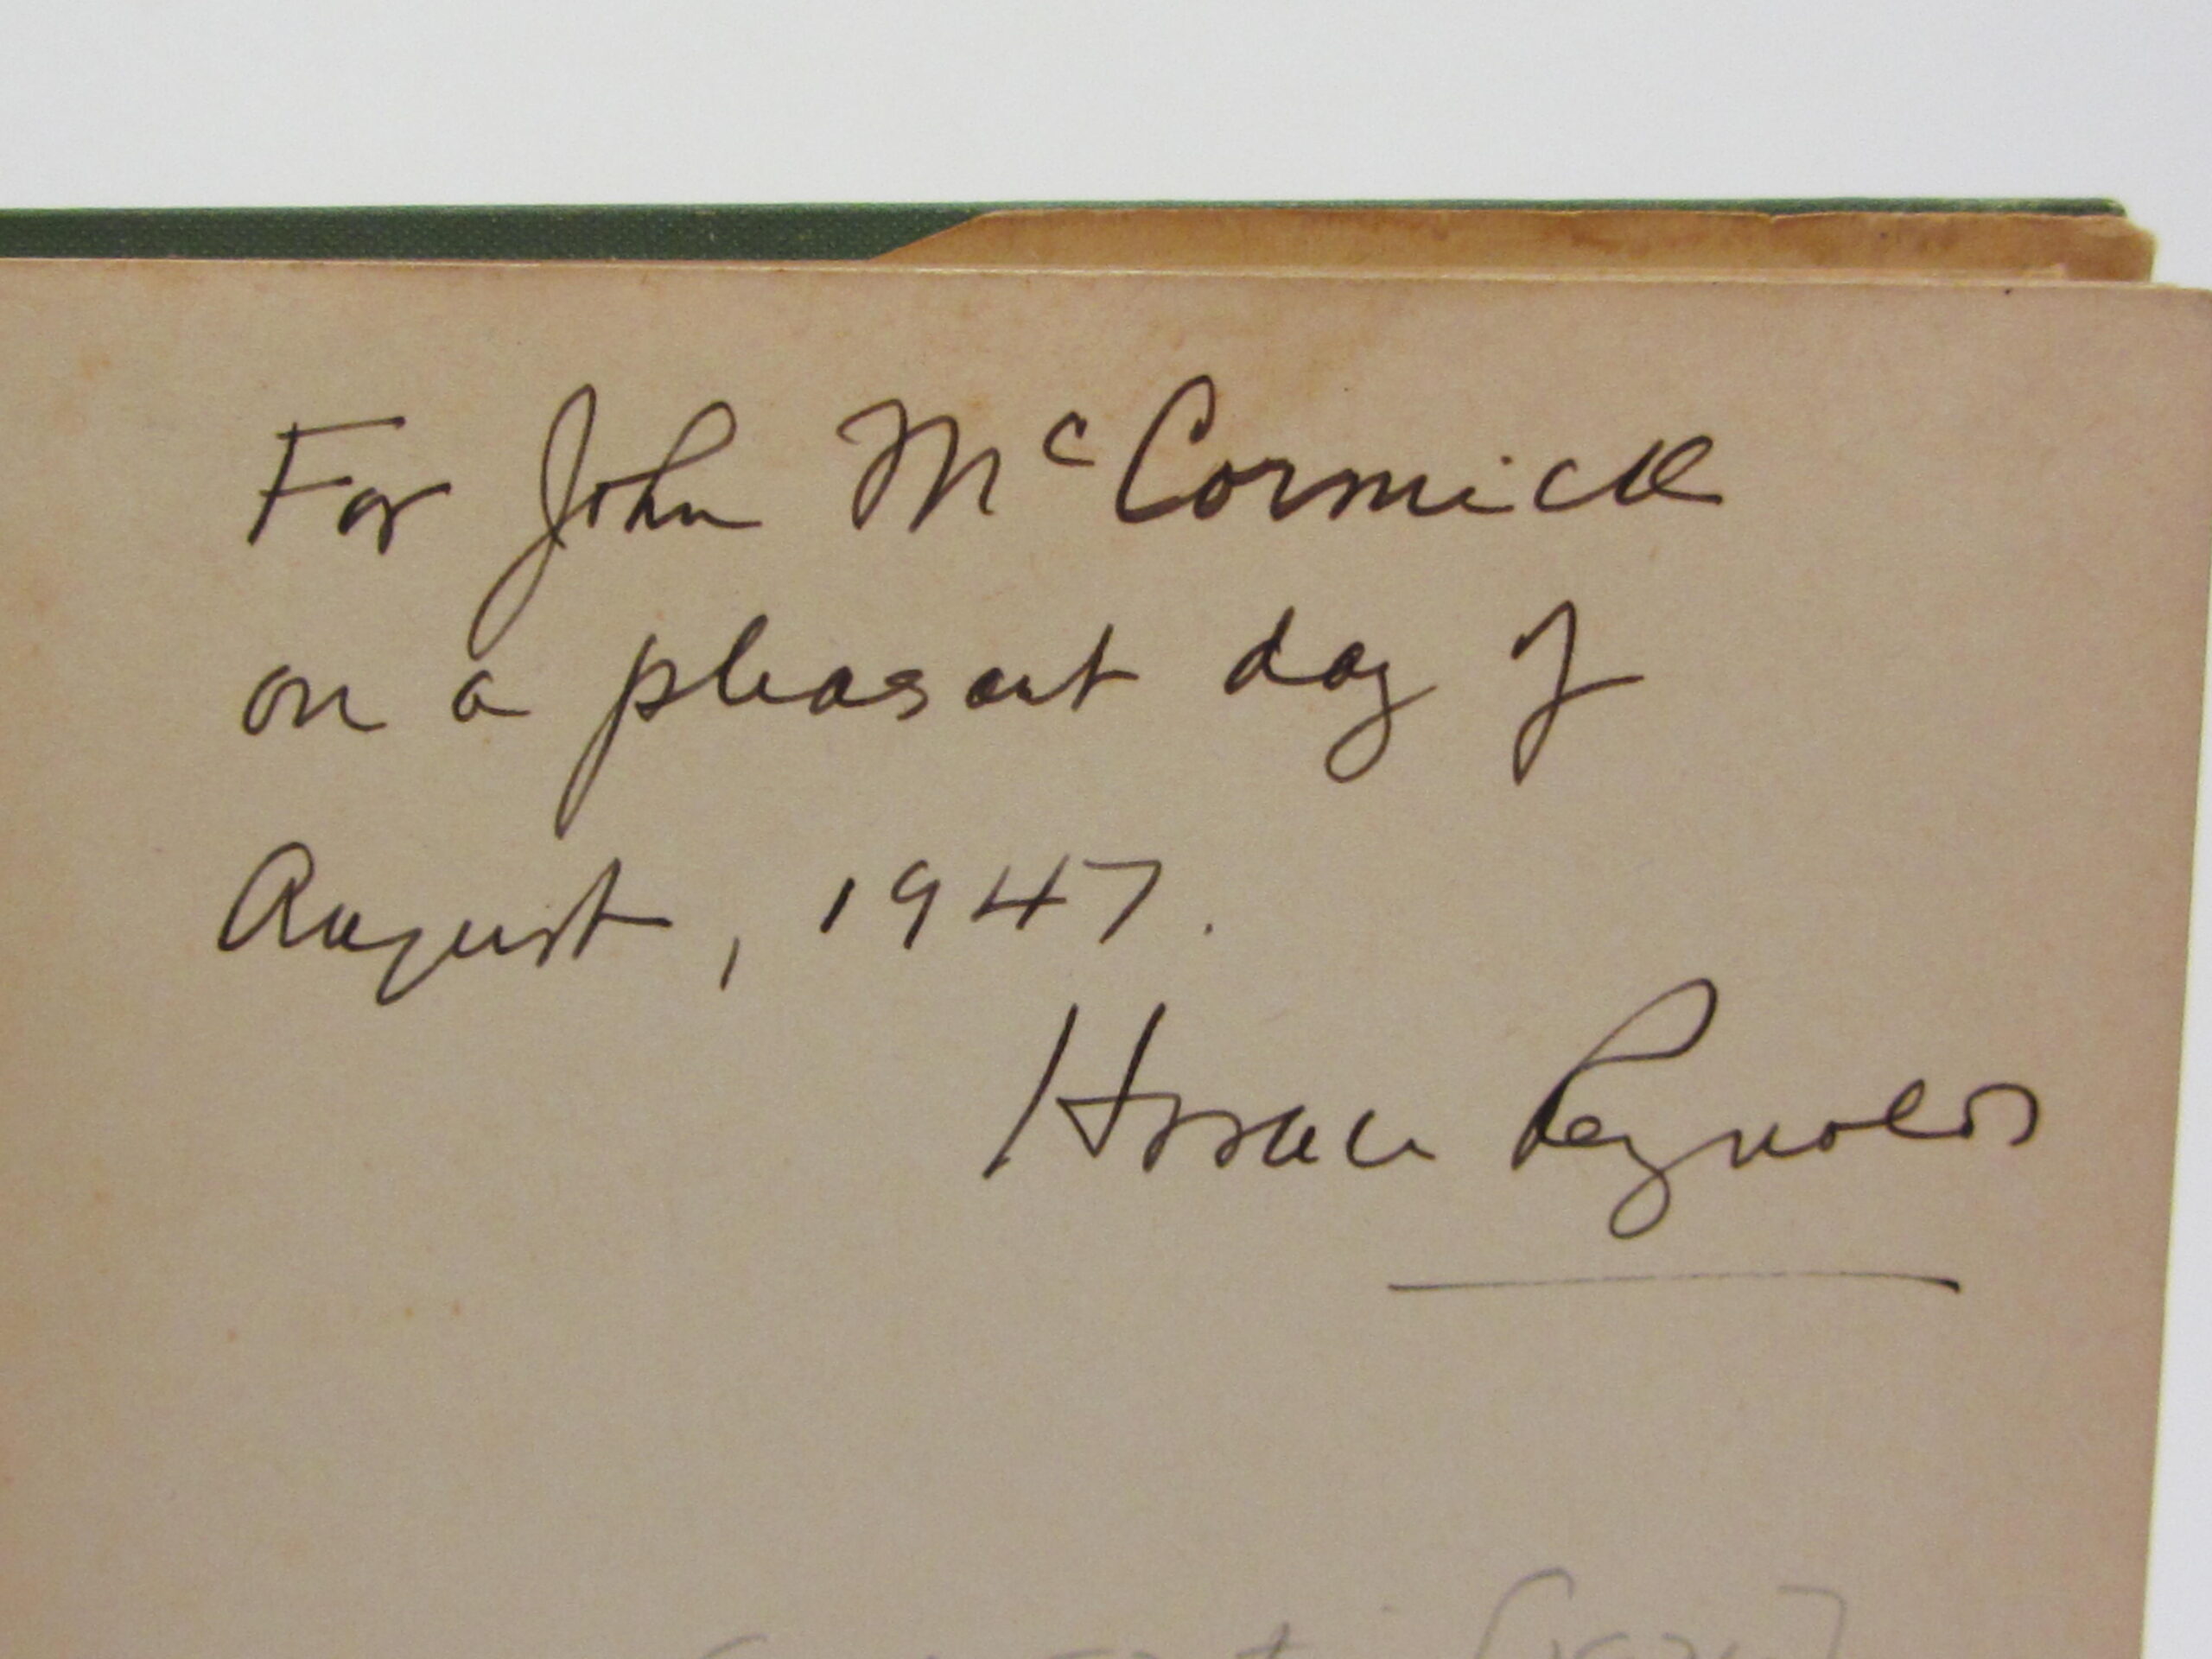 For John McCormick
on a pleasant day of
August, 1947.
Horace Reynolds